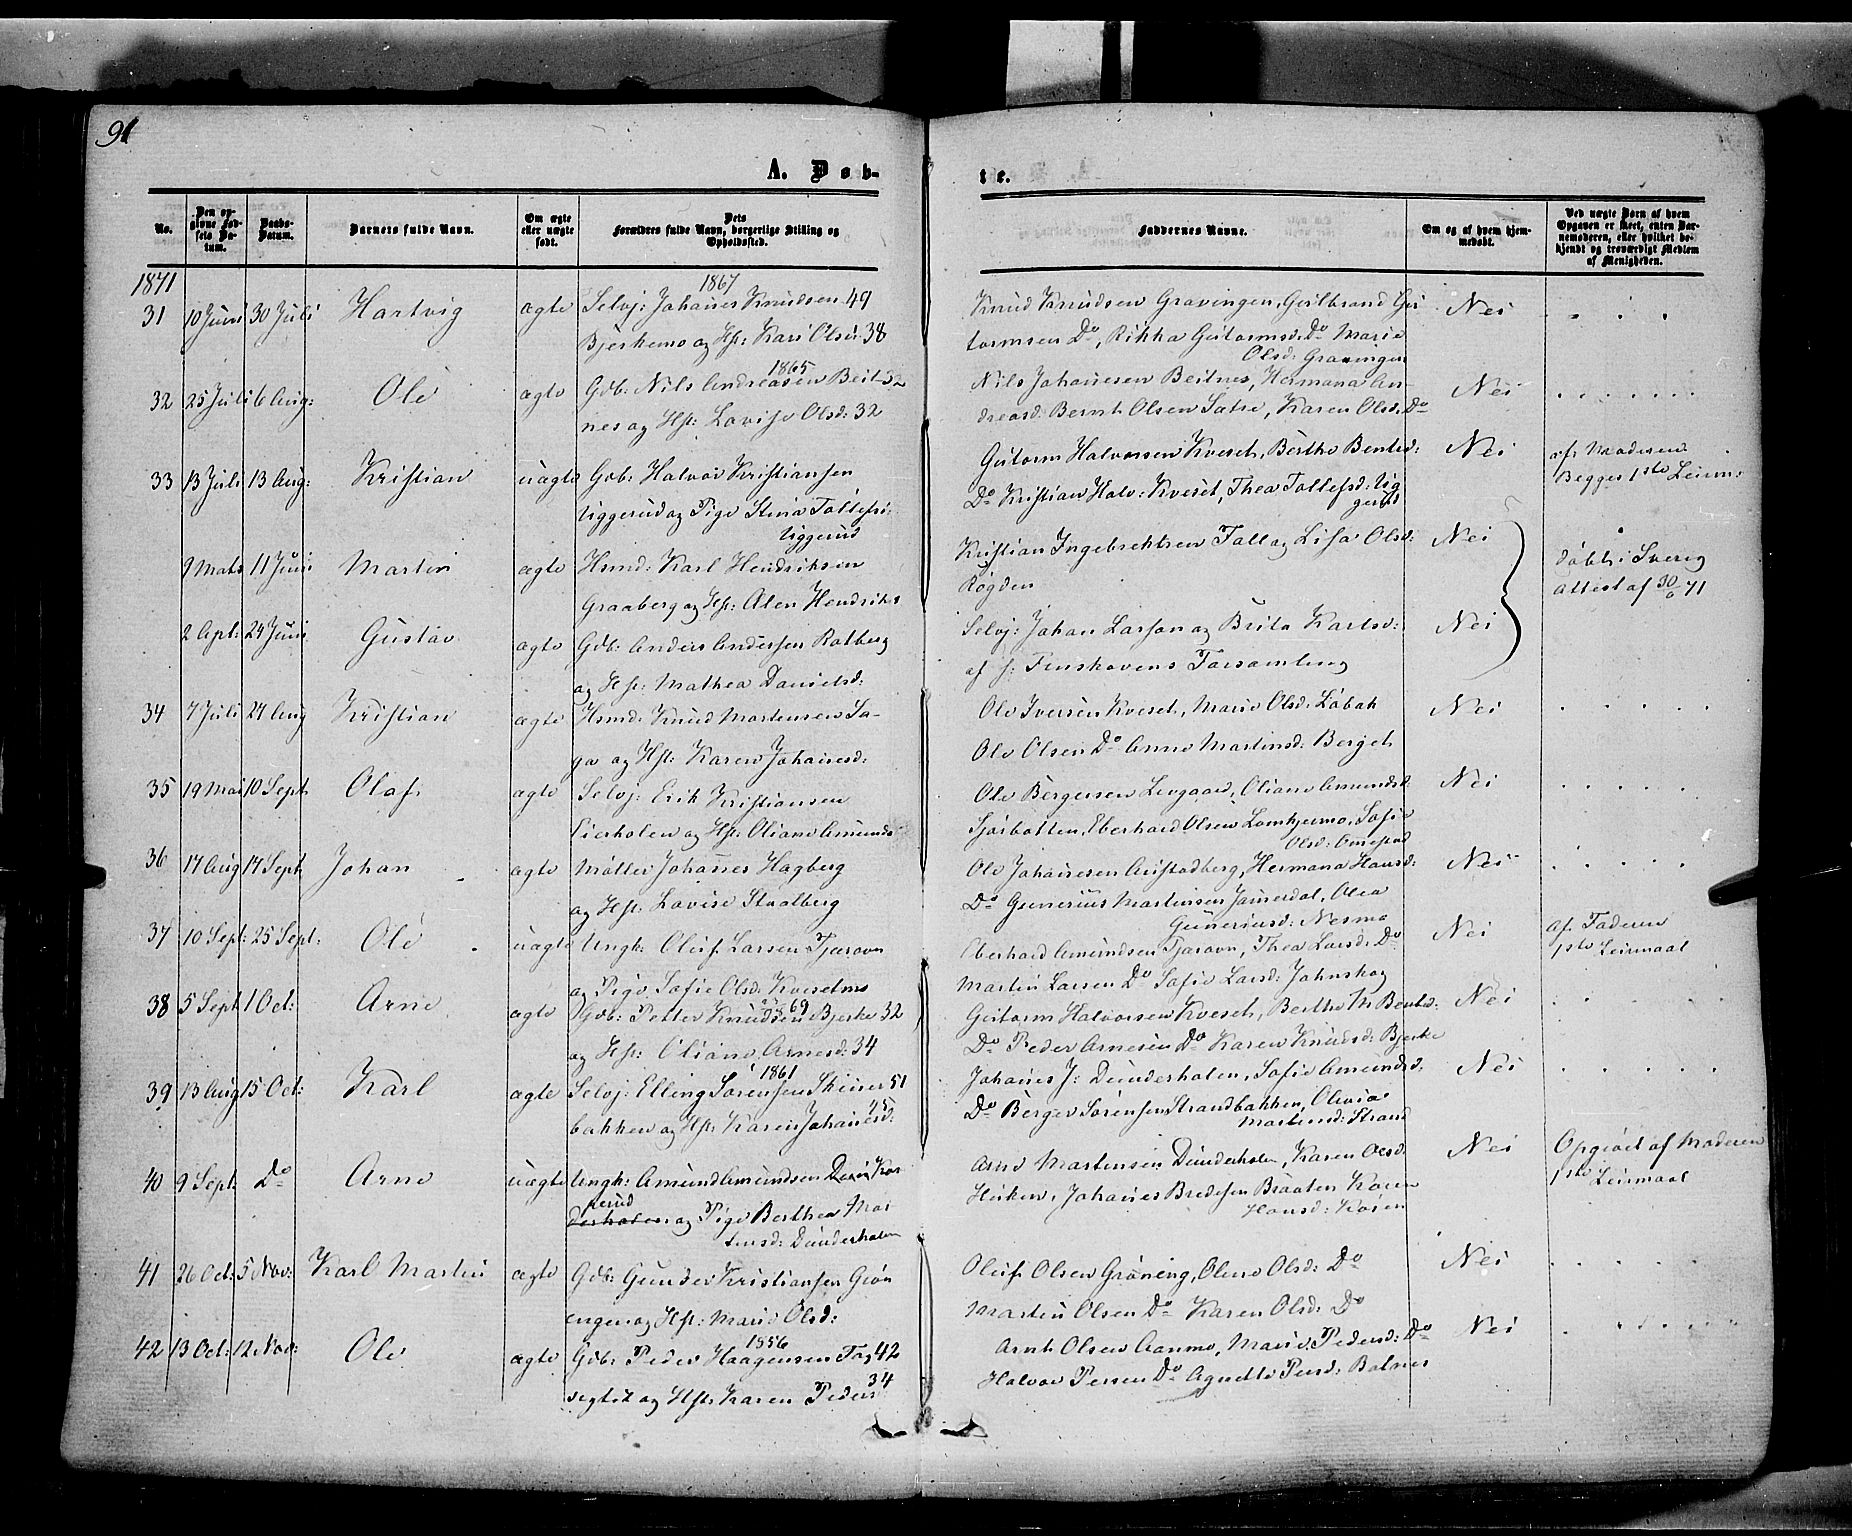 91
A. Døb-
te.
No.
Den opgivne Fødsels Datum.
Daabs-Datum.
Barnets fulde Navn.
Om ægte eller uægte født.
Dets Forældres fulde Navn, borgerlige Stilling og Opholdssted.
Faddernes Navne.
Om og af hvem hjemmedøbt.
Ved uægte Børn af hvem Opgaven er skeet, enten Barnemoderen, eller hvilket bekjendt og troværdigt Medlem af Menigheden.
1871
31 10 Juni 30 Juli Hartvig ægte Selvj: Johannes Knudsen 49 1867
Bjerkemo og Hst: Kari Olsd: 38
Knud Knudsen Gravingen, Gulbrand Gu
tormsen Do, Rikka Gutormsd: Do Marie
Olsd: Gravingen
Nei
32 25 Juli 6 Aug: Ole ægte Gdb: Nils Andreasen Beit- 32 1865
nes og Hst: Lovise Olsd: 32
Nils Johannesen Beitnes, Hermana An-
dreasd: Bernt Olsen Satre, Karen Olsd: Do
Nei
33 13 Juli 13 Aug: Kristian uægte Gdb: Halvor Kristiansen
Liggerud og Pige Stina Tollefsd:
Liggerud
Gutorm Halvorsen Kveset, Berthe Bentsd:
Do Kristian Halv: Kveset, Thea Tollefsd: Lig
gerud
Nei
af Moderen
Begges 1ste Leierm:
9 Mats 11 Juni Martin ægte Hsmd: Karl Hendriksen
Graaberg og Hst: Alen Hendriks
Kristian Ingebrektsen Fall og Lisa Olsd:
Røgden
Nei
døbt i Sverig
Attest af 30/6 71
2 Apr: 24 Juni Gustav ægte Gdb: Anders Andersen Rotberg
og Hst: Mathea Danielsd:
Selvj: Johan Larsson og Brita Karlsd:
af f: Finskovens Forsamling
Nei
34 7 Juli 27 Aug Kristian ægte Hsmd: Knud Mortensen Sa-
ga og Hst: Karen Johannesd:
Ole Iversen Kveset, Marie Olsd: Løbak
Ole Olsen Do Anne Martinsd: Berget
Nei
35 19 Mai 10 Sept Olaf ægte Selvj: Erik Kristiansen
Lierholen og Hst: Oliane Amunds
Ole Bergersen Levgaard, Oliane Amundsd:
Sjøbotten, Eberhard Olsen Lomkjermo, Sofie
Olsd: Omestad
Nei
36 17 Aug 17 Sept Johan ægte Møller Johannes Hagberg
og Hst: Lovise Staalberg
Ole Johannesen Austadberg, Hermana Hansd:
Do Gunerius Martinsen Jamerdal, Olea
Guneriusd: Nesmo
Nei
37 10 Sept: 25 Sept: Ole uægte Ungk: Oluf Larsen Tjæraavn
og Pige Sofie Olsd: Kvesetmo
Eberhard Amundsen Tjæraavn, Thea Larsd: Do
Martin Larsen Do Sofie Larsd: Johnshag
Nei
Af Faderen
1ste Leiermaal
38 5 Sept 1 Oct: Arne ægte Gdb: Petter Knudsen Bjerke 32 69
og Hst: Oliane Arnesd: 34
Gutorm Halvorsen Kveset, Berthe M Bentsd:
Do Peder Arnesen Do Karen Knudsd: Bjerke
Nei
39 13 Aug 15 Oct: Karl ægte Selvj: Elling Sørensen Skinner 51 1861
bakken og Hst: Karen Johannesd: 45
Johannes J: Dunderholen, Sofie Amundsd.
Do Berger Sørensen Strandbakken, Olivia
Martinsd: Strand
Nei
40 9 Sept: Do Arne uægte Ungk: Amund Amundsen Dun Kor
perud
derholen og Pige Berthea Mor
tensd: Dunderholen
Arne Mortensen Dunderholen, Karen Olsd:
Heiken, Johannes Bredesen Braaten Karen
Hansd: Kaisen
Nei
Opgivet af Moderen
1ste Leiermaal
41 26 Oct: 5 Nov: Karl Martin ægte Gdb: Gunder Kristiansen Grøn
engen og Hst: Marie Olsd:
Oluf Olsen Grøneng, Olene Olsd: Do
Martin Olsen Do Karen Olsd: Do
Nei
42 13 Oct: 12 Nov: Ole ægte Gdb: Peder Haagensen Tag 42 1856
segtet og Hst: Karen Peders 34
Arnt Olsen Aanmo, Marie Pedersd: Do
Halvor Persen Do Agnette Persd: Batnes
Nei